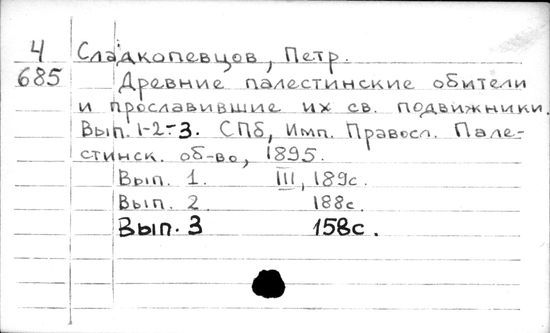 4 Сладкопевцов, Петр.
685 Древние палестинские обители
и прославившие их св. подвижники.
Вып. 1-2-3. СПб, Имп. Правосл. Пале-
стинск. об-во, 1895.
Вып. 1. III, 189с.
Вып. 2 188с.
Вып. 3 158с.